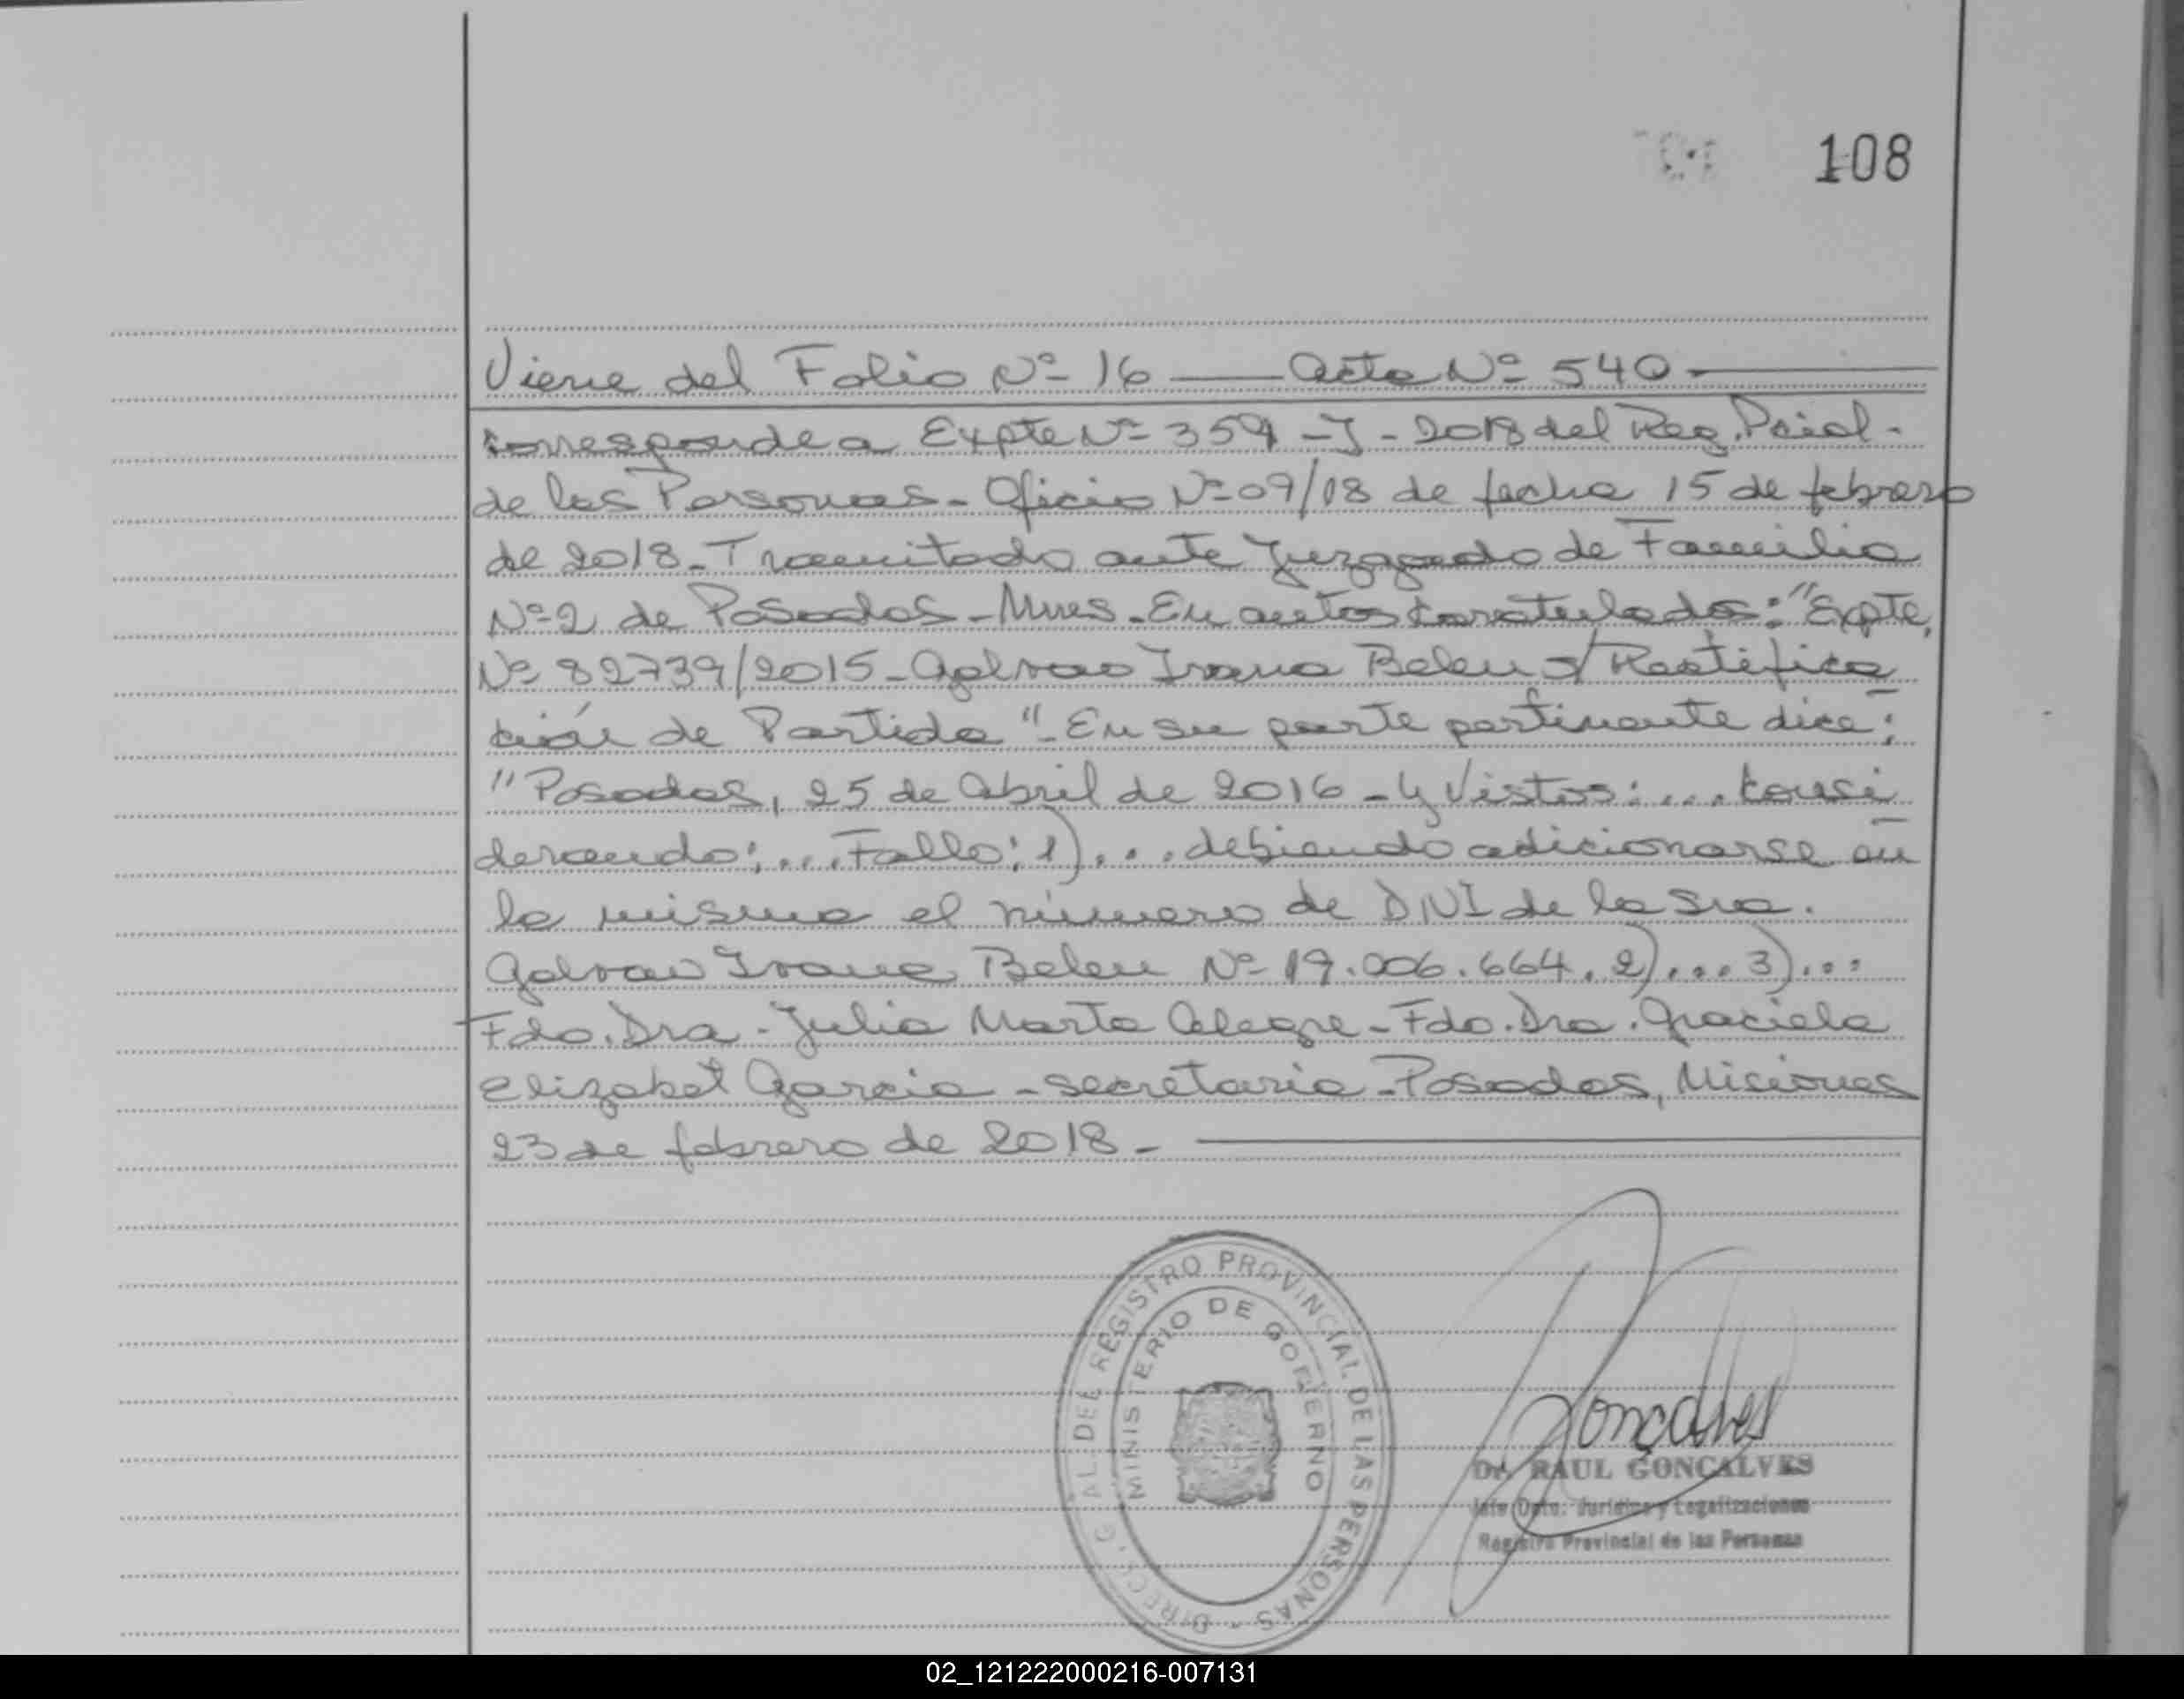 108
Viene del Folio Nº 16 — Acta Nº 540 —
corresponde a Expte Nº 359 - J - 2018 del Reg. Pcial.
de las Personas - Oficio Nº 09/18 de fecha 15 de febrero
de 2018 - Tramitado ante Juzgado de Familia
Nº 2 de Posadas - Mnes. - En autos caratulados: "Expte.
Nº 82739/2015 - Galvao Ivana Belen s/ Rectifica
ción de Partida" - En su parte pertinente dice:
"Posadas, 25 de Abril de 2016 - y Vistos: ... Consi
derando: ... Fallo: 1) ... debiendo adicionarse en
la misma el número de DNI de la Sra.
Galvao Ivana Belen Nº 19.006.664. 2) ... 3) ...
Fdo. Dra. Julia Marta Alegre - Fdo. Dra. Graciela
Elizabet Garcia - Secretaria - Posadas, Misiones
23 de febrero de 2018 -
DIRECC. GRAL DEL REGISTRO PROVINCIAL DE LAS PERSONAS -
MINISTERIO DE GOBIERNO
Goncalves
Dr. RAUL GONCALVES
Jefe Dpto. Jurídico y Legalizaciones
Registro Provincial de las Personas
02_121222000216-007131